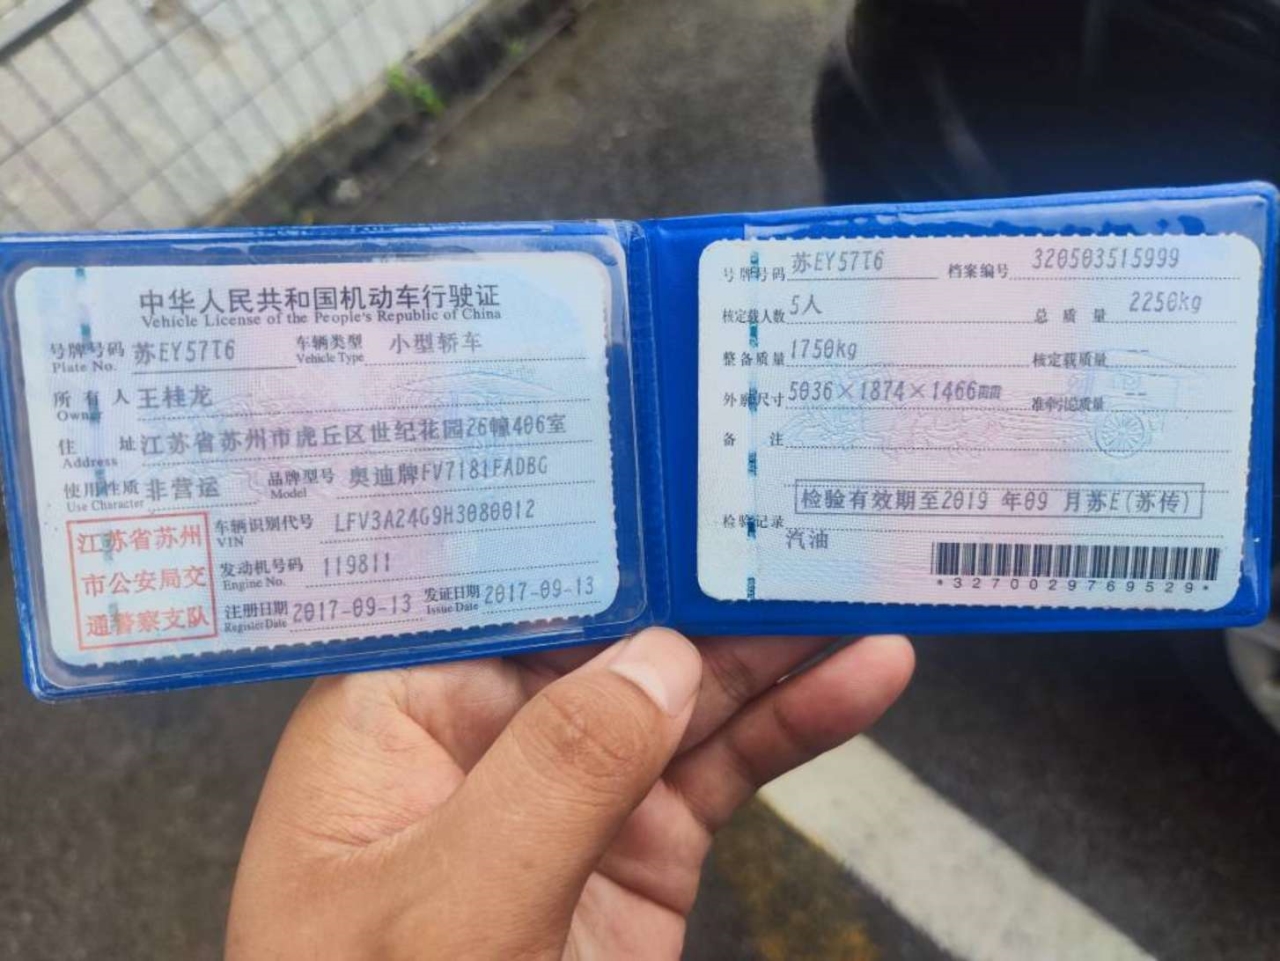 中华人民共和国机动车行驶证
Vehicle License of the People's Republic of China
号牌号码 苏EY57T6 车辆类型 小型轿车
Plate No. Vehicle Type
所有人 王桂龙
Owner
住址 江苏省苏州市虎丘区世纪花园26幢406室
Address
使用性质 非营运 品牌型号 奥迪牌FV7181FADBG
Use Character Model
江苏省苏州
市公安局交
通警察支队
车辆识别代号 LFV3A24G9H3080012
VIN
发动机号码 119811
Engine No.
注册日期 2017-09-13 发证日期 2017-09-13
Register Date Issue Date
号牌号码 苏EY57T6 档案编号 320503515999
核定载人数 5人 总质量 2250kg
整备质量 1750kg 核定载质量 --
外廓尺寸 5036×1874×1466㎜ 准牵引总质量 --
备注
检验有效期至2019 年09 月苏E(苏传)
检验记录
汽油
*3270029769529*